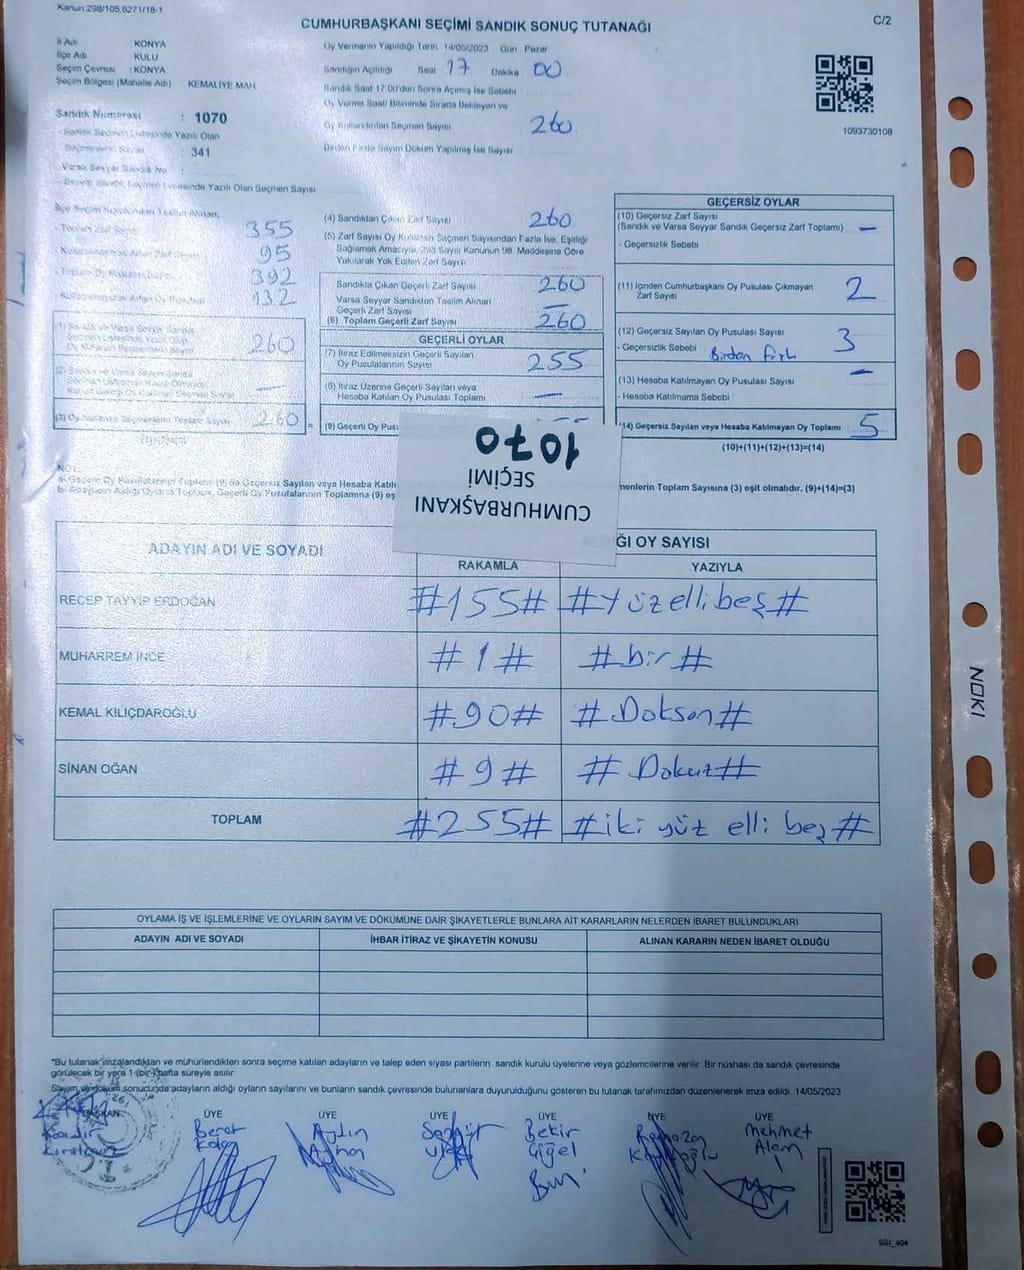 Kanun:298/105,6271/18-1
CUMHURBAŞKANI SEÇİMİ SANDIK SONUÇ TUTANAĞI
C/2
İl Adı : KONYA
İlçe Adı : KULU
Seçim Çevresi : KONYA
Seçim Bölgesi (Mahalle Adı) : KEMALİYE MAH
Sandık Numarası : 1070
- Sandık Seçmen Listesinde Yazılı Olan
Seçmenlerin Sayısı : 341
Varsa Seyyar Sandık No :
- Seyyar Sandık Seçmen Listesinde Yazılı Olan Seçmen Sayısı
Oy Vermenin Yapıldığı Tarih 14/05/2023 Gün : Pazar
Sandığın Açıldığı Saat 17 Dakika 00
Sandık Saat 17:00'den Sonra Açılmış İse Sebebi
Oy Verme Saati Bitiminde Sırada Bekleyen ve
Oy Kullandırılan Seçmen Sayısı 260
Birden Fazla Sayım Döküm Yapılmış İse Sayısı
1093730108
İlçe Seçim Kurulundan Teslim Alınan;
- Toplam Zarf Sayısı 355
- Kullanılmayarak Artan Zarf Sayısı 95
- Toplam Oy Pusulası Sayısı 392
- Kullanılmayarak Artan Oy Pusulası 132
(1) Sandık ve Varsa Seyyar Sandık
Seçmen Listesinde Yazılı Olup
Oy Kullanan Seçmenlerin Sayısı 260
(2) Sandık ve Varsa Seyyar Sandık
Seçmen Listesinde Kaydı Olmayıp
Kanun Gereği Oy Kullanan Seçmen Sayısı —
(3) Oy Kullanan Seçmenlerin Toplam Sayısı 260 =
(1)+(2)=(3)
(4) Sandıktan Çıkan Zarf Sayısı 260
(5) Zarf Sayısı Oy Kullanan Seçmen Sayısından Fazla İse, Eşitliği
Sağlamak Amacıyla, 298 Sayılı Kanunun 98. Maddesine Göre
Yakılarak Yok Edilen Zarf Sayısı
Sandıkta Çıkan Geçerli Zarf Sayısı 260
Varsa Seyyar Sandıktan Teslim Alınan
Geçerli Zarf Sayısı —
(6) Toplam Geçerli Zarf Sayısı 260
GEÇERLİ OYLAR
(7) İtiraz Edilmeksizin Geçerli Sayılan
Oy Pusulalarının Sayısı 255
(8) İtiraz Üzerine Geçerli Sayılan veya
Hesaba Katılan Oy Pusulası Toplamı —
(9) Geçerli Oy Pusu
GEÇERSİZ OYLAR
(10) Geçersiz Zarf Sayısı
(Sandık ve Varsa Seyyar Sandık Geçersiz Zarf Toplamı) —
- Geçersizlik Sebebi
(11) İçinden Cumhurbaşkanı Oy Pusulası Çıkmayan
Zarf Sayısı 2
(12) Geçersiz Sayılan Oy Pusulası Sayısı
- Geçersizlik Sebebi Birden Fazla 3
(13) Hesaba Katılmayan Oy Pusulası Sayısı —
- Hesaba Katılmama Sebebi
14) Geçersiz Sayılan veya Hesaba Katılmayan Oy Toplamı 5
(10)+(11)+(12)+(13)=(14)
CUMHURBAŞKANI
SEÇİMİ
1070
NOT:
a- Geçerli Oy Pusulalarının Toplamı (9) ile Geçersiz Sayılan veya Hesaba Katıl
menlerin Toplam Sayısına (3) eşit olmalıdır. (9)+(14)=(3)
b- Adayların Aldığı Oyların Toplamı, Geçerli Oy Pusulalarının Toplamına (9) eş
ADAYIN ADI VE SOYADI
ĞI OY SAYISI
RAKAMLA YAZIYLA
RECEP TAYYİP ERDOĞAN #155# #Yüzellibeş#
MUHARREM İNCE #1# #bir#
KEMAL KILIÇDAROĞLU #90# #Doksan#
SİNAN OĞAN #9# #Dokuz#
TOPLAM #255# #iki yüz elli beş#
OYLAMA İŞ VE İŞLEMLERİNE VE OYLARIN SAYIM VE DÖKÜMÜNE DAİR ŞİKAYETLERLE BUNLARA AİT KARARLARIN NELERDEN İBARET BULUNDUKLARI
ADAYIN ADI VE SOYADI İHBAR İTİRAZ VE ŞİKAYETİN KONUSU ALINAN KARARIN NEDEN İBARET OLDUĞU
*Bu tutanak imzalandıktan ve mühürlendikten sonra seçime katılan adayların ve talep eden siyasi partilerin sandık kurulu üyelerine veya gözlemcilerine verilir. Bir nüshası da sandık çevresinde
görülecek bir yere 1 (bir) hafta süreyle asılır.
Sayım ve döküm sonucunda adayların aldığı oyların sayılarını ve bunların sandık çevresinde bulunanlara duyurulduğunu gösteren bu tutanak tarafımızdan düzenlenerek imza edildi. 14/05/2023
BAŞKAN ÜYE ÜYE ÜYE ÜYE ÜYE ÜYE
Berat Aydın Bekir Ramazan Mehmet
Alan
NOKI
SSI_404